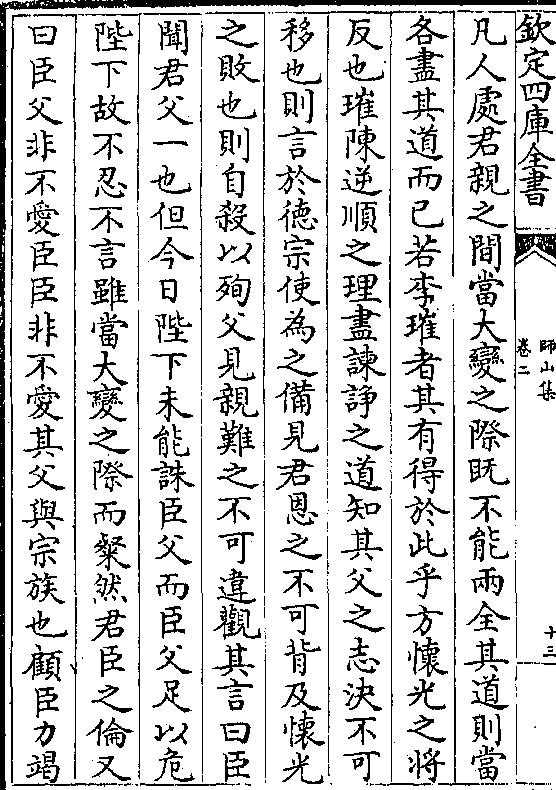 欽定四庫全書
師山集
卷二
十三
凡人處君親之間當大變之際既不能兩全其道則當
各盡其道而已若李璀者其有得於此乎方懷光之將
反也璀陳逆順之理盡諫諍之道知其父之志決不可
移也則言於德宗使為之備見君恩之不可背及懷光
之敗也則自殺以殉父見親難之不可違觀其言曰臣
聞君父一也但今日陛下未能誅臣父而臣父足以危
陛下故不忍不言雖當大變之際而粲然君臣之倫又
曰臣父非不愛臣臣非不愛其父與宗族也顧臣力竭